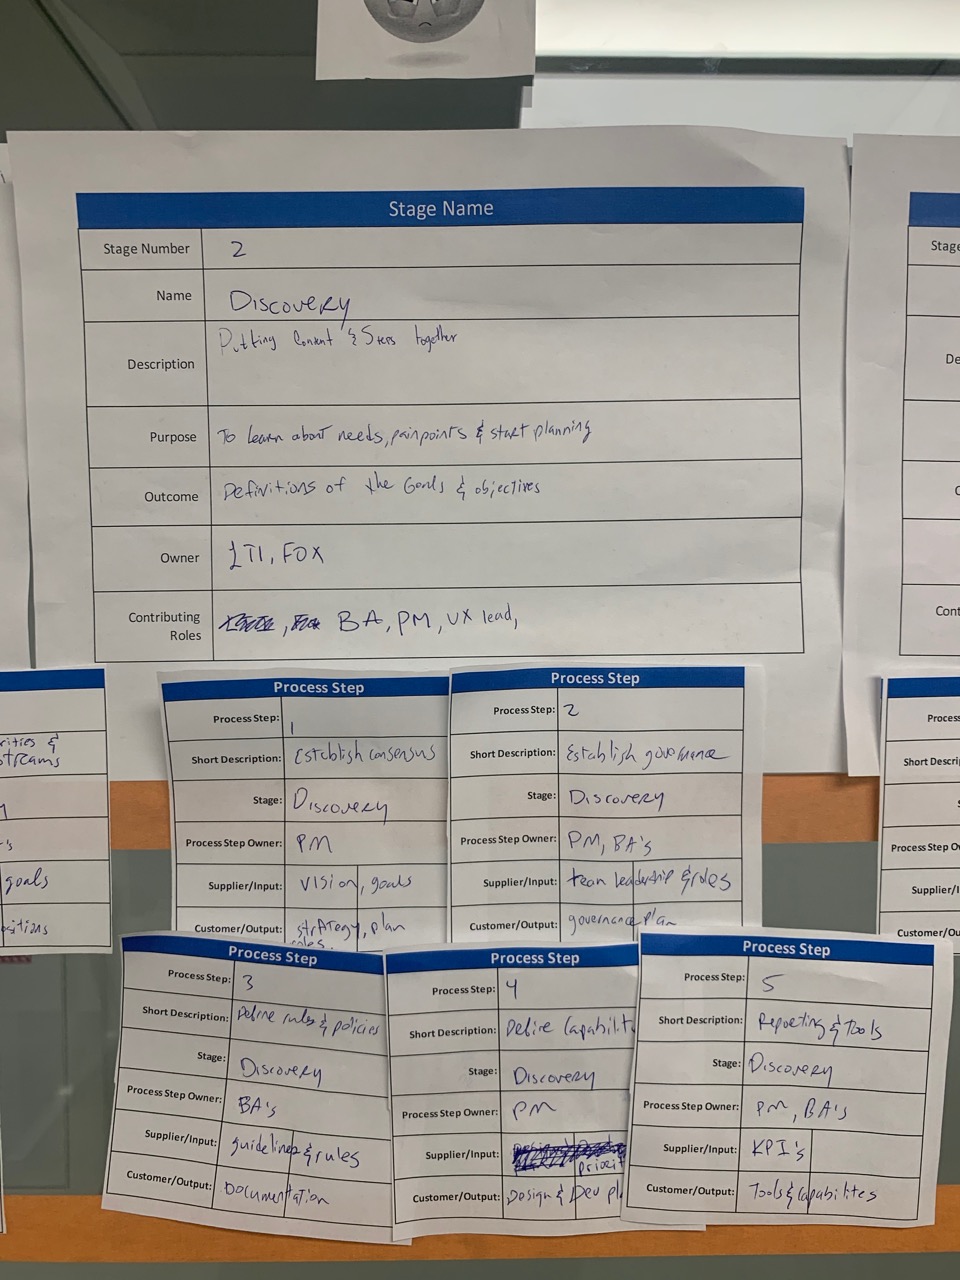 Stage Name
Stage Number 2
Name Discovery
Description Putting & together
Purpose To learn about needs, painpoints & start planning
Outcome Definitions of the Goals & objectives
Owner LTI, FOX
Contributing Roles BA, PM, UX lead,
Stage
De
Cont
&
streams
goals
Process Step
Process Step: 1
Short Description: Establish consensus
Stage: Discovery
Process Step Owner: PM
Supplier/Input: Vision, goals
Customer/Output: strategy, plan
roles.
Process Step
Process Step: 2
Short Description: Establish governance
Stage: Discovery
Process Step Owner: PM, BA's
Supplier/Input: team leadership & roles
Customer/Output: governance plan
Process
Short Descri
Process Step O
Supplier/I
Customer/Ou
Process Step
Process Step: 3
Short Description: Define rules & policies
Stage: Discovery
Process Step Owner: BA's
Supplier/Input: guidelines & rules
Customer/Output: Documentation
Process Step
Process Step: 4
Short Description: Define Capabilit
Stage: Discovery
Process Step Owner: PM
Supplier/Input: priorit
Customer/Output: Design & Dev pl
Process Step
Process Step: 5
Short Description: Reporting & Tools
Stage: Discovery
Process Step Owner: PM, BA's
Supplier/Input: KPI's
Customer/Output: Tools & Capabilites